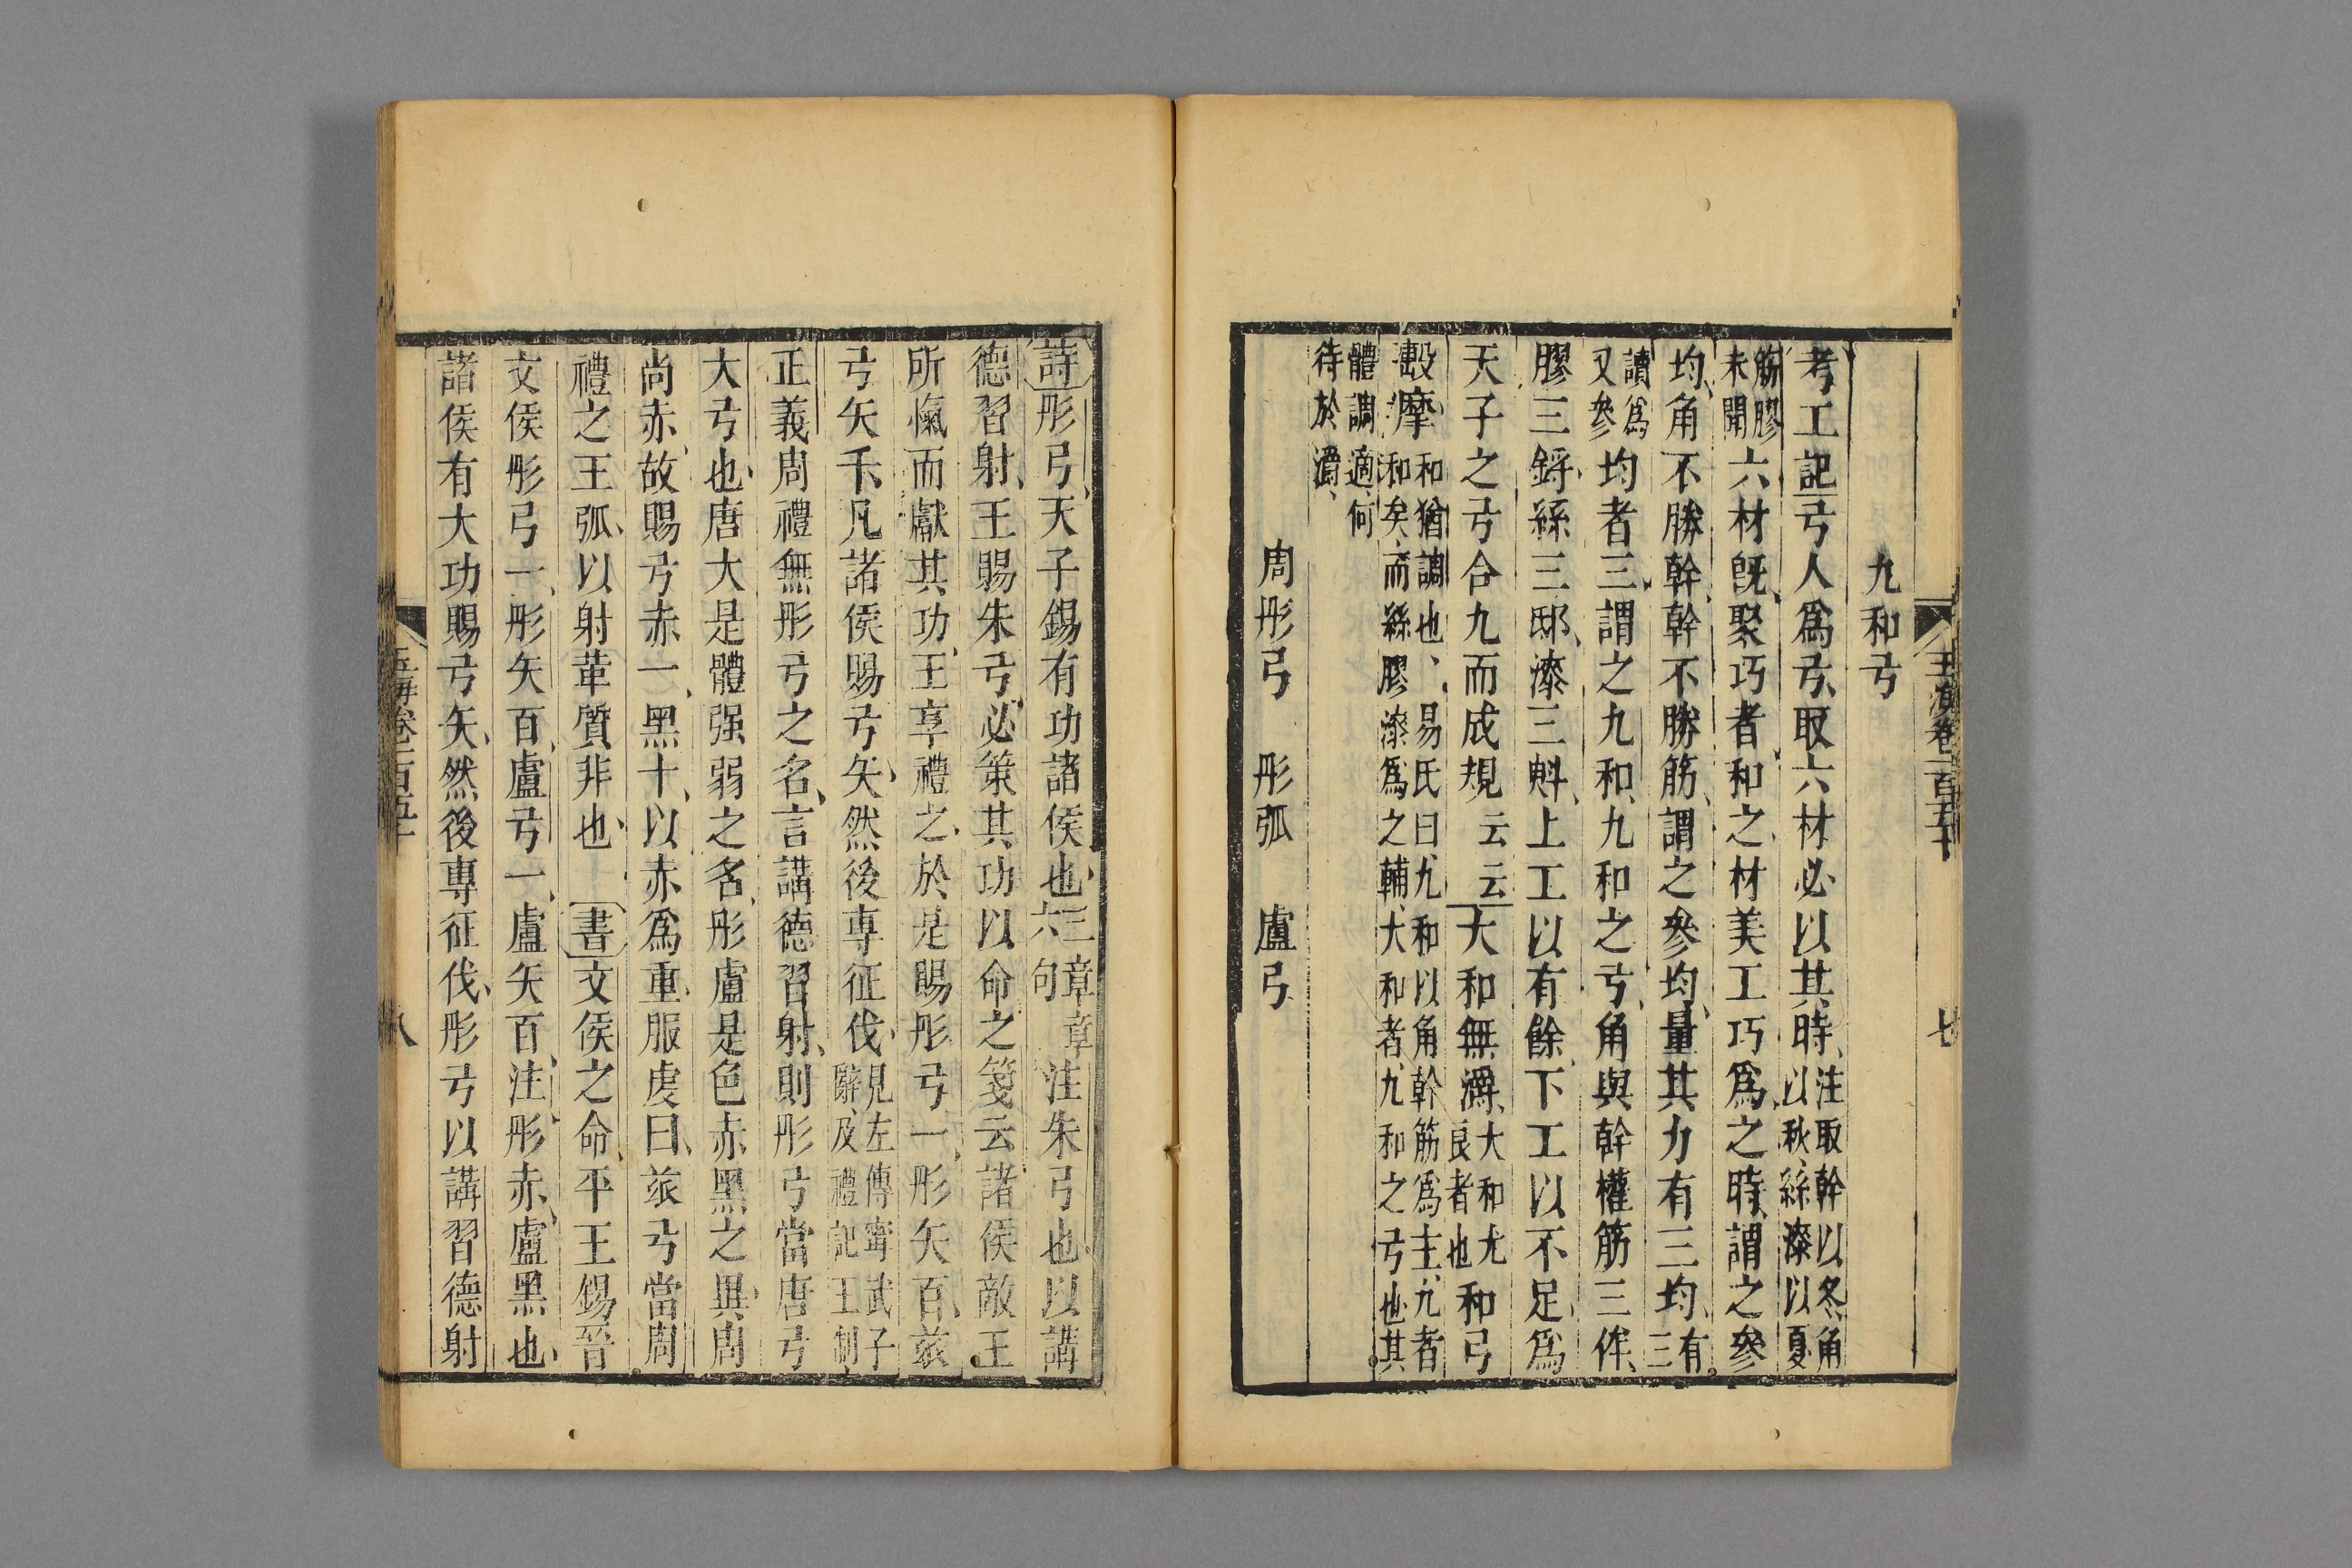 玉海卷一百五十
七
九和弓
考工記弓人爲弓取六材必以其時注取幹以冬角
以秋絲漆以夏
筋膠
未聞六材旣聚巧者和之材美工巧爲之時謂之參
均角不勝幹幹不勝筋謂之參均量其力有三均有
三
讀爲
又參均者三謂之九和九和之弓角與幹權筋三侔
膠三鋝絲三邸漆三㪺上工以有餘下工以不足爲
天子之弓合九而成規云云大和無灂大和尤
良者也和弓
摩和猶調也易氏曰九和以角幹筋爲主九者
和矣而絲膠漆爲之輔大和者九和之弓也其
體調適何
待於灂
周彤弓 彤弧 盧弓
詩彤弓天子錫有功諸侯也三章章
六句注朱弓也以講
德習射王賜朱弓必策其功以命之箋云諸侯敵王
所愾而獻其功王享禮之於是賜彤弓一彤矢百玈
弓矢千凡諸侯賜弓矢然後專征伐見左傳甯武子
辭及禮記王制
正義周禮無彤弓之名言講德習射則彤弓當唐弓
大弓也唐大是體强弱之名彤盧是色赤黑之異周
尚赤故賜弓赤一黑十以赤爲重服虔曰玈弓當周
禮之王弧以射革質非也書文侯之命平王錫晉
文侯彤弓一彤矢百盧弓一盧矢百注彤赤盧黑也
諸侯有大功賜弓矢然後專征伐彤弓以講習德射
玉海卷一百五十
八